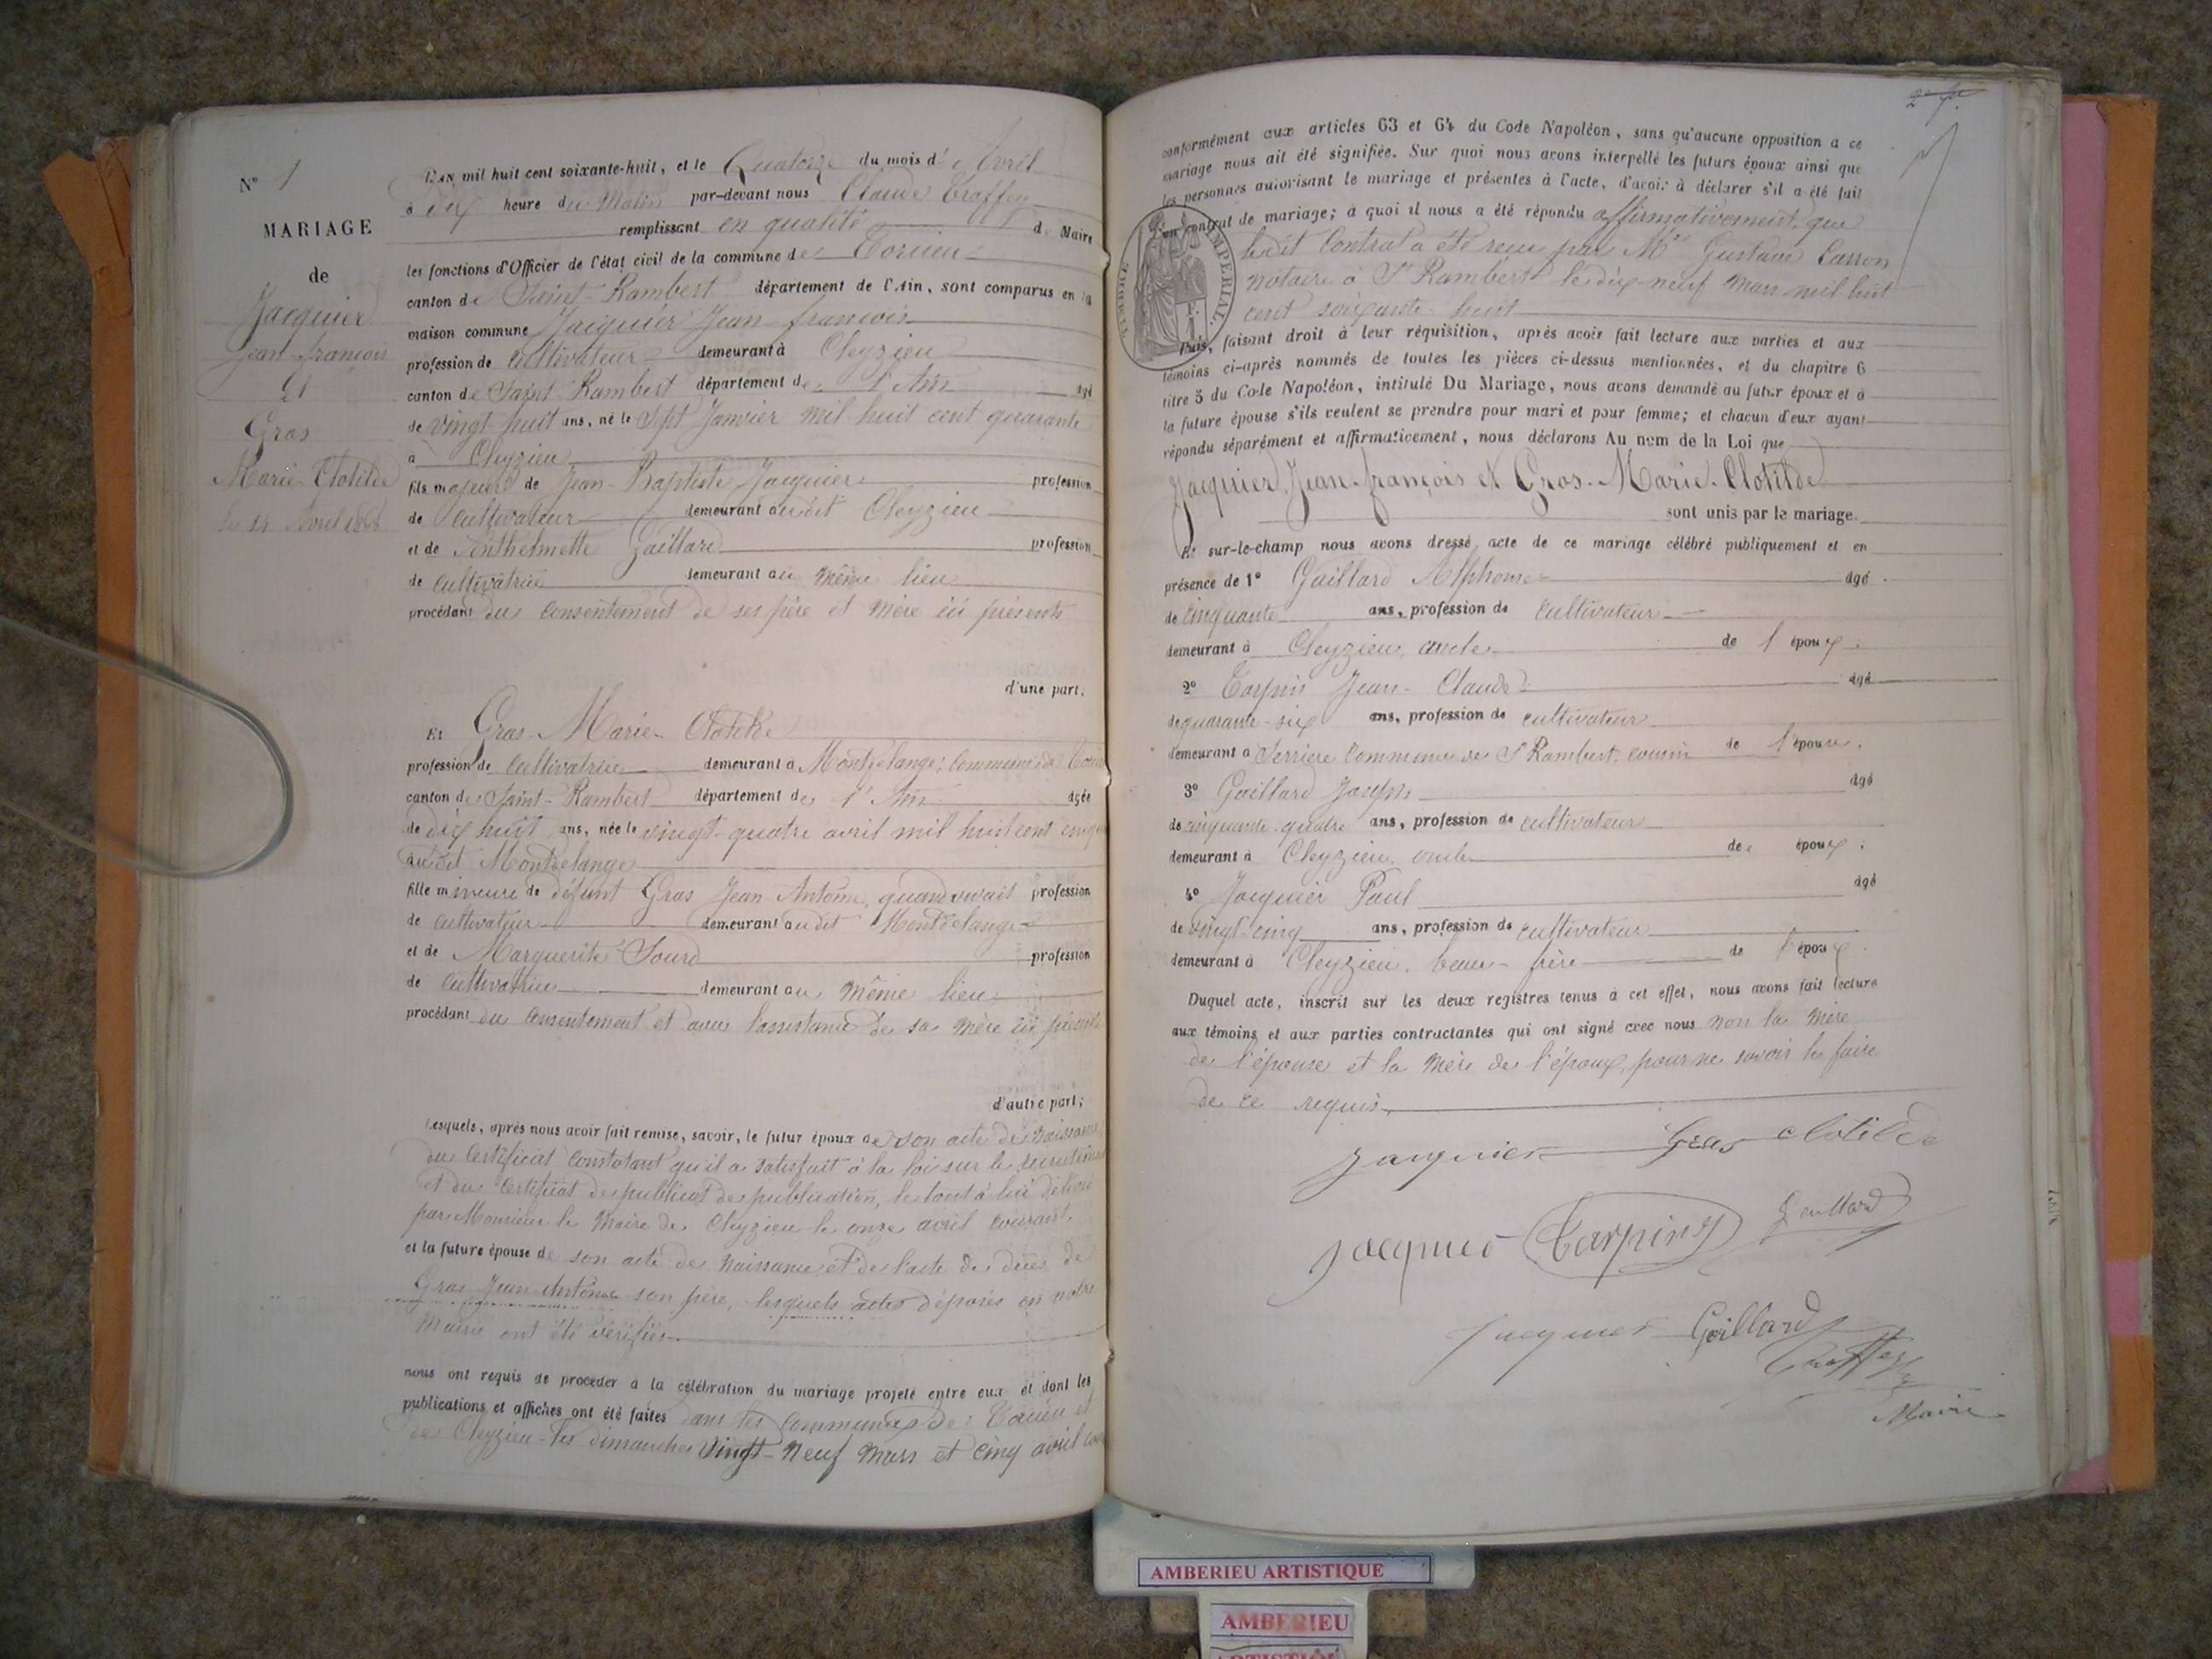 N° 1
MARIAGE
de
Jacquier
Jean-françois
Et
Gras
Marie-Clotilde
le 14 Avril 1868
L'AN mil huit cent soixante-huit, et le Quatorze du mois d' Avril
à dix heure du Matin par-devant nous Claude Traffey
remplissant en qualité de Maire
les fonctions d'Officier de l'état civil de la commune de Torcieu
canton de Saint-Rambert département de l'Ain, sont comparus en la
maison commune Jacquier Jean-françois
profession de cultivateur demeurant à Cleyzieu
canton de Saint Rambert département de l'Ain âgé
de vingt huit ans, né le Sept Janvier mil huit cent quarante
à Cleyzieu
fils majeur de Jean-Baptiste Jacquier profession
de cultivateur demeurant audit Cleyzieu
et de Anthelmette Gaillard profession
de cultivatrice demeurant au même lieu
procédant du consentement de ses père et mère ici présents
d'une part;
Et Gras-Marie-Clotilde
profession de cultivatrice demeurant à Montdelange, Commune de
canton de Saint-Rambert département de l'Ain âgée
de dix huit ans, née le vingt-quatre avril mil huit cent
audit Montdelange
fille mineure de défunt Gras Jean Antoine, quand vivait profession
de cultivateur demeurant audit Montdelange
et de Marguerite Sourd profession
de cultivatrice demeurant au même lieu
procédant du consentement et avec l'assistance de sa mère ici présente
d'autre part;
Lesquels, après nous avoir fait remise, savoir, le futur époux de son acte de naissance
du certificat constatant qu'il a satisfait à la loi sur le recrutement
et du certificat de publicat de publication, le tout à lui délivré
par Monsieur le Maire de Cleyzieu le onze avril courant,
et la future épouse de son acte de naissance et de l'acte de décès de
Gras Jean Antoine son père, lesquels actes déposés en notre
Mairie ont été vérifiés
nous ont requis de procéder à la célébration du mariage projeté entre eux et dont les
publications et affiches ont été faites dans les communes de Torcieu et
de Cleyzieu les dimanches vingt-neuf mars et cinq avril
conformément aux articles 63 et 64 du Code Napoléon, sans qu'aucune opposition à ce
mariage nous ait été signifiée. Sur quoi nous avons interpellé les futurs époux ainsi que
les personnes autorisant le mariage et présentes à l'acte, d'avoir à déclarer s'il a été fait
un contrat de mariage; à quoi il nous a été répondu affirmativement, que
ledit Contrat a été reçu par Me Gustave Carron
notaire à St Rambert le dix-neuf mars mil huit
cent soixante-huit
TIMBRE IMPÉRIAL
Puis, faisant droit à leur réquisition, après avoir fait lecture aux parties et aux
témoins ci-après nommés de toutes les pièces ci-dessus mentionnées, et du chapitre 6
titre 5 du Code Napoléon, intitulé Du Mariage, nous avons demandé au futur époux et à
la future épouse s'ils veulent se prendre pour mari et pour femme; et chacun d'eux ayant
répondu séparément et affirmativement, nous déclarons Au nom de la Loi que
Jacquier, Jean-françois et Gras-Marie-Clotilde
sont unis par le mariage.
Et sur-le-champ nous avons dressé acte de ce mariage célébré publiquement et en
présence de 1° Gaillard Alphonse âgé
de cinquante ans, profession de cultivateur
demeurant à Cleyzieu, oncle de l'époux.
2° Tarpin Jean-Claude âgé
de quarante-six ans, profession de cultivateur
demeurant à Serriere Commune de St Rambert, cousin de l'épouse.
3° Gaillard Joseph âgé
de cinquante-quatre ans, profession de cultivateur
demeurant à Cleyzieu, oncle de époux;
4° Jacquier Paul âgé
de vingt-cinq ans, profession de cultivateur
demeurant à Cleyzieu, beau-frère de l'époux.
Duquel acte, inscrit sur les deux registres tenus à cet effet, nous avons fait lecture
aux témoins et aux parties contractantes qui ont signé avec nous non la mère
de l'épouse et la mère de l'époux, pour ne savoir le faire
de ce requis.
Jacquier Gras Clotilde
Jacquier Tarpin Gaillard
Jacquier Gaillard
Traffey
Maire
AMBERIEU ARTISTIQUE
AMBERIEU
ARTISTIQUE